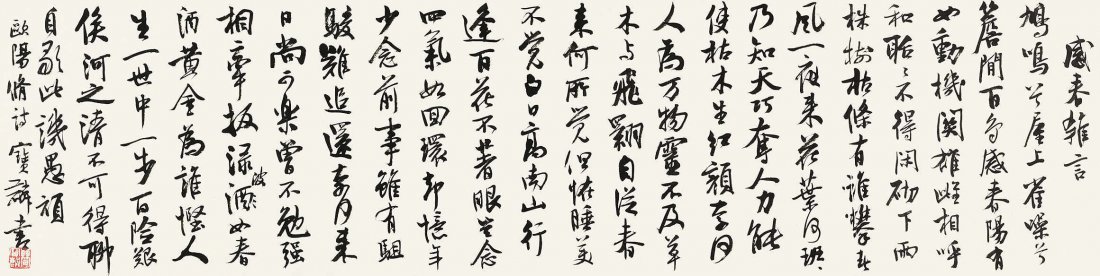 感春雜言
鳩鳴兮屋上雀噪兮
簷間百鳥感春陽有
如動機關雄雌相呼
和聒〻不得闲砌下兩
株樹枯條有誰攀春
風一夜來花葉何班〻
乃知天巧奪人力能
使枯木生紅顏奈何
人為萬物靈不及草
木与飛翾自從春
來何所覺但怪睡美
不覺白日高南山行
逢百花不著眼豈念
四氣如回環却憶年
少念前事雖有駔
駿難追還奈何來
日尚可樂曾不勉强
相牽扳渌酒波如春
酒黃金為誰慳人
生一世中一步百險艱
俟河之清不可得聊
自歌此譏愚頑
歐陽脩詩寶麟書